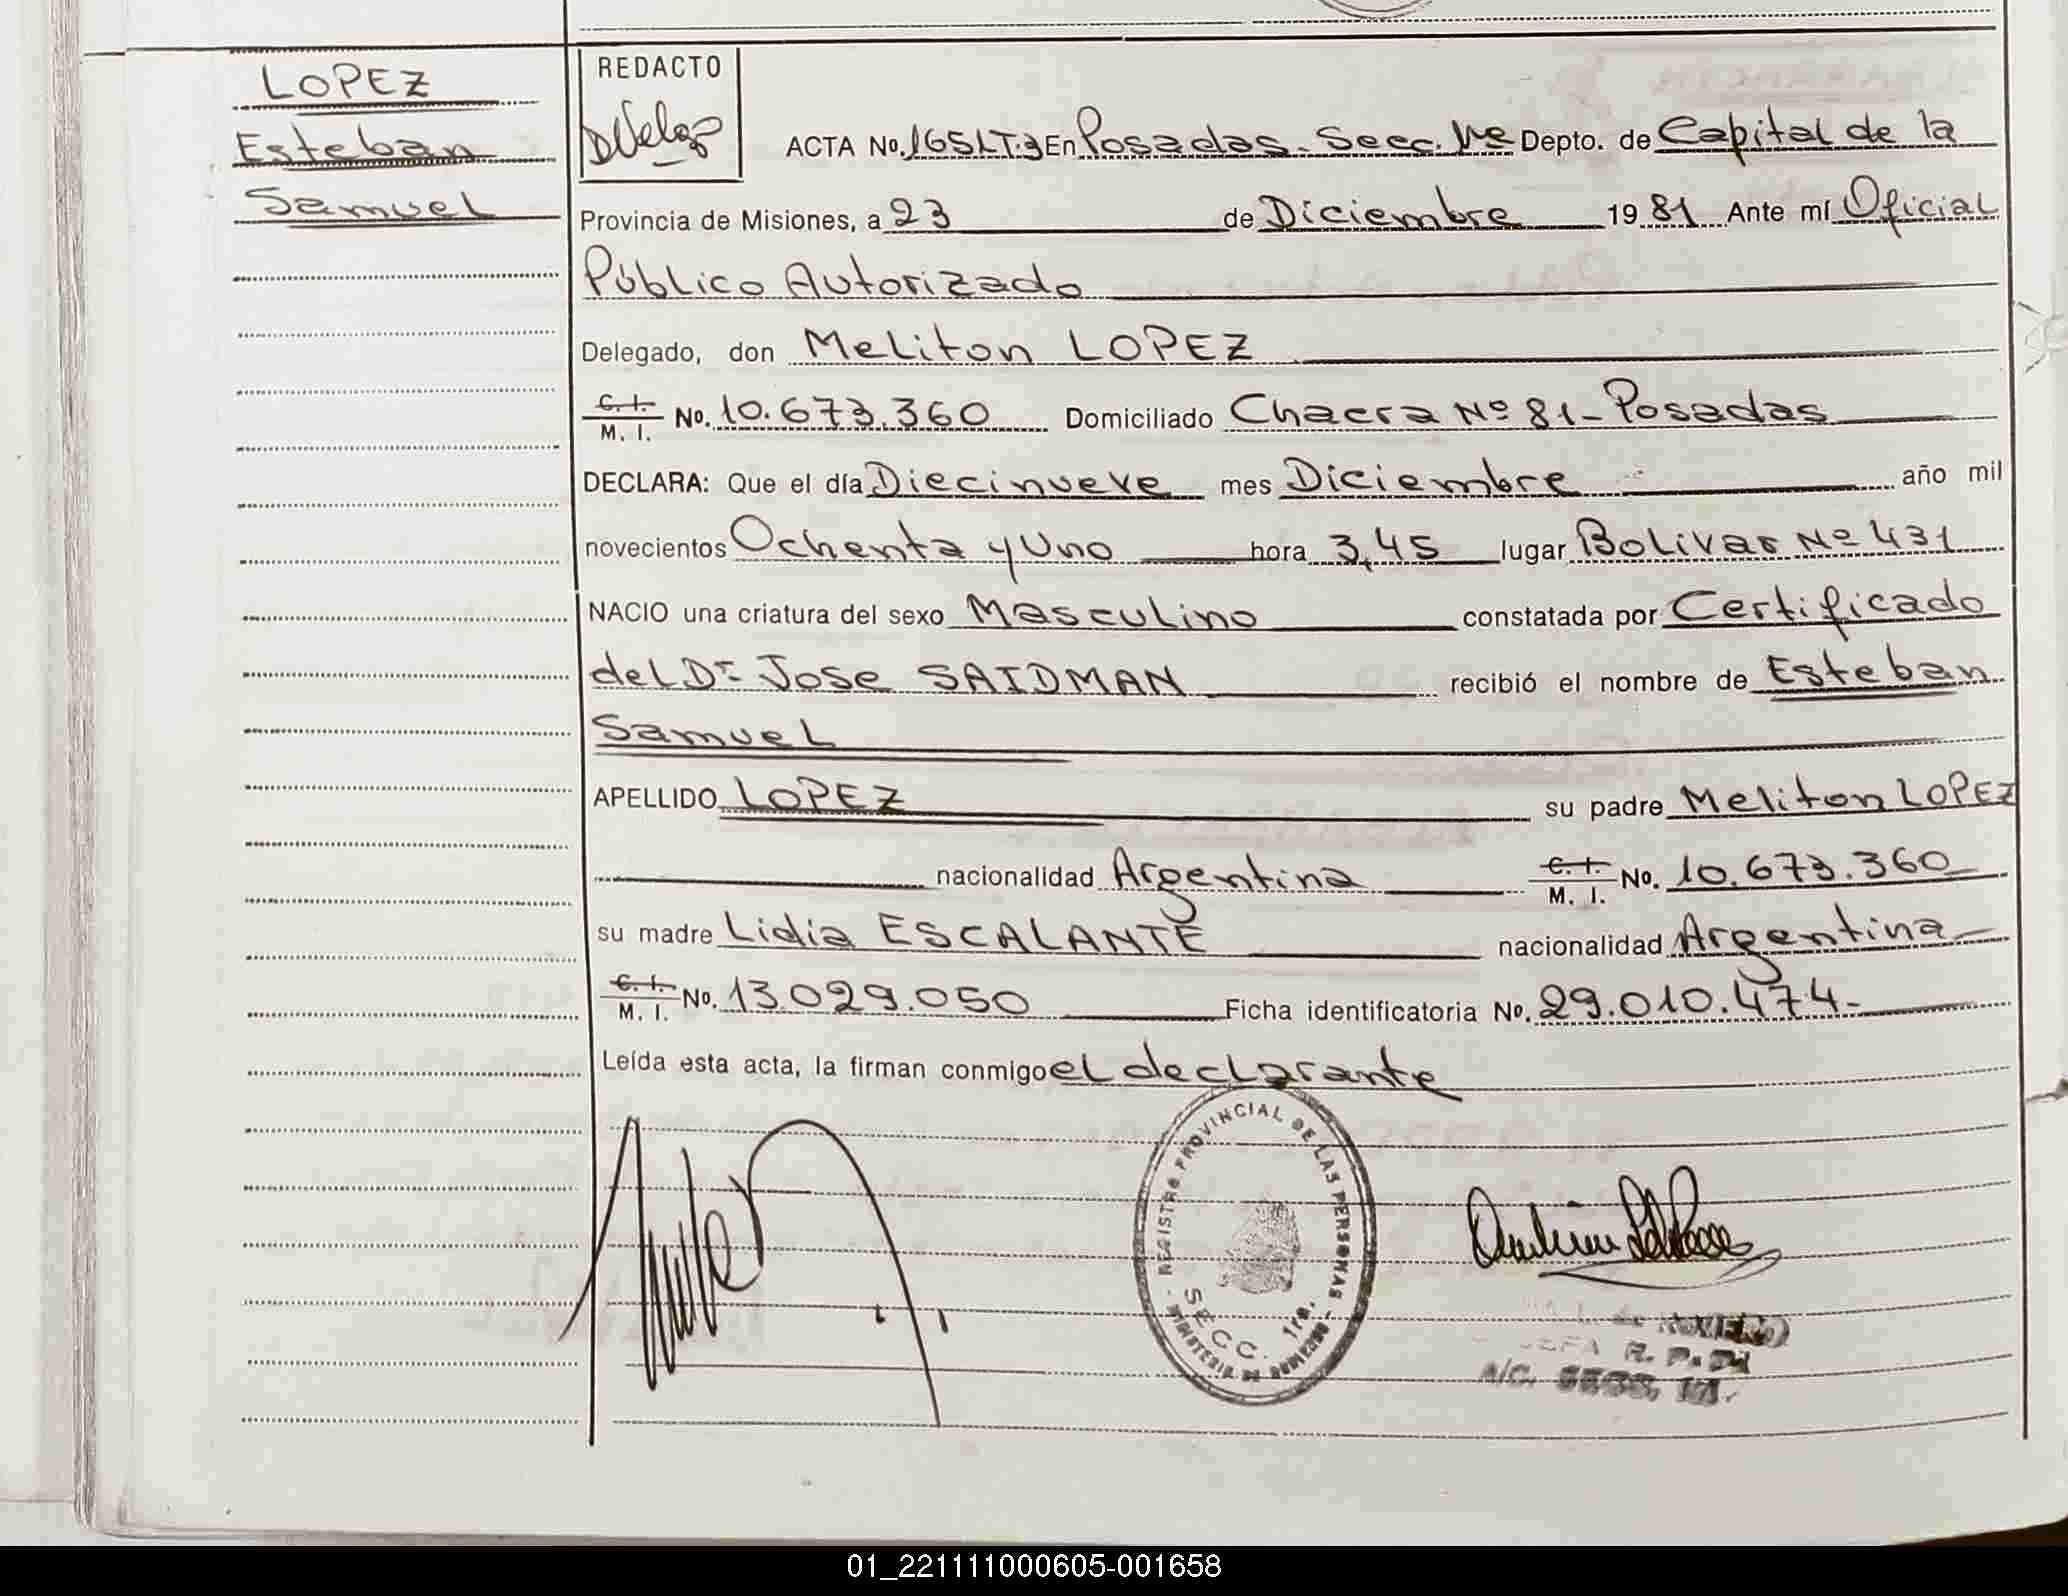 LOPEZ
Esteban
Samuel
REDACTO
ACTA No. 165 LT.3 En Posadas. Secc. 1ra Depto. de Capital de la
Provincia de Misiones, a 23 de Diciembre 1981 Ante mí Oficial
Público Autorizado
Delegado, don Meliton LOPEZ
C. I.
M. I. No. 10.673.360 Domiciliado Chacra Nº 81 - Posadas
DECLARA: Que el día Diecinueve mes Diciembre año mil
novecientos Ochenta y Uno hora 3,45 lugar Bolivar Nº 431
NACIO una criatura del sexo Masculino constatada por Certificado
del Dr Jose SAIDMAN recibió el nombre de Esteban
Samuel
APELLIDO LOPEZ su padre Meliton LOPEZ
nacionalidad Argentina C. I.
M. I. No. 10.673.360
su madre Lidia ESCALANTE nacionalidad Argentina
C. I.
M. I. No. 13.029.050 Ficha identificatoria No. 29.010.474-
Leída esta acta, la firman conmigo el declarante
REGISTRO PROVINCIAL DE LAS PERSONAS
MINISTERIO DE GOBIERNO
SECC. 1ra.
R. P.
A/C. SECC.
01_221111000605-001658